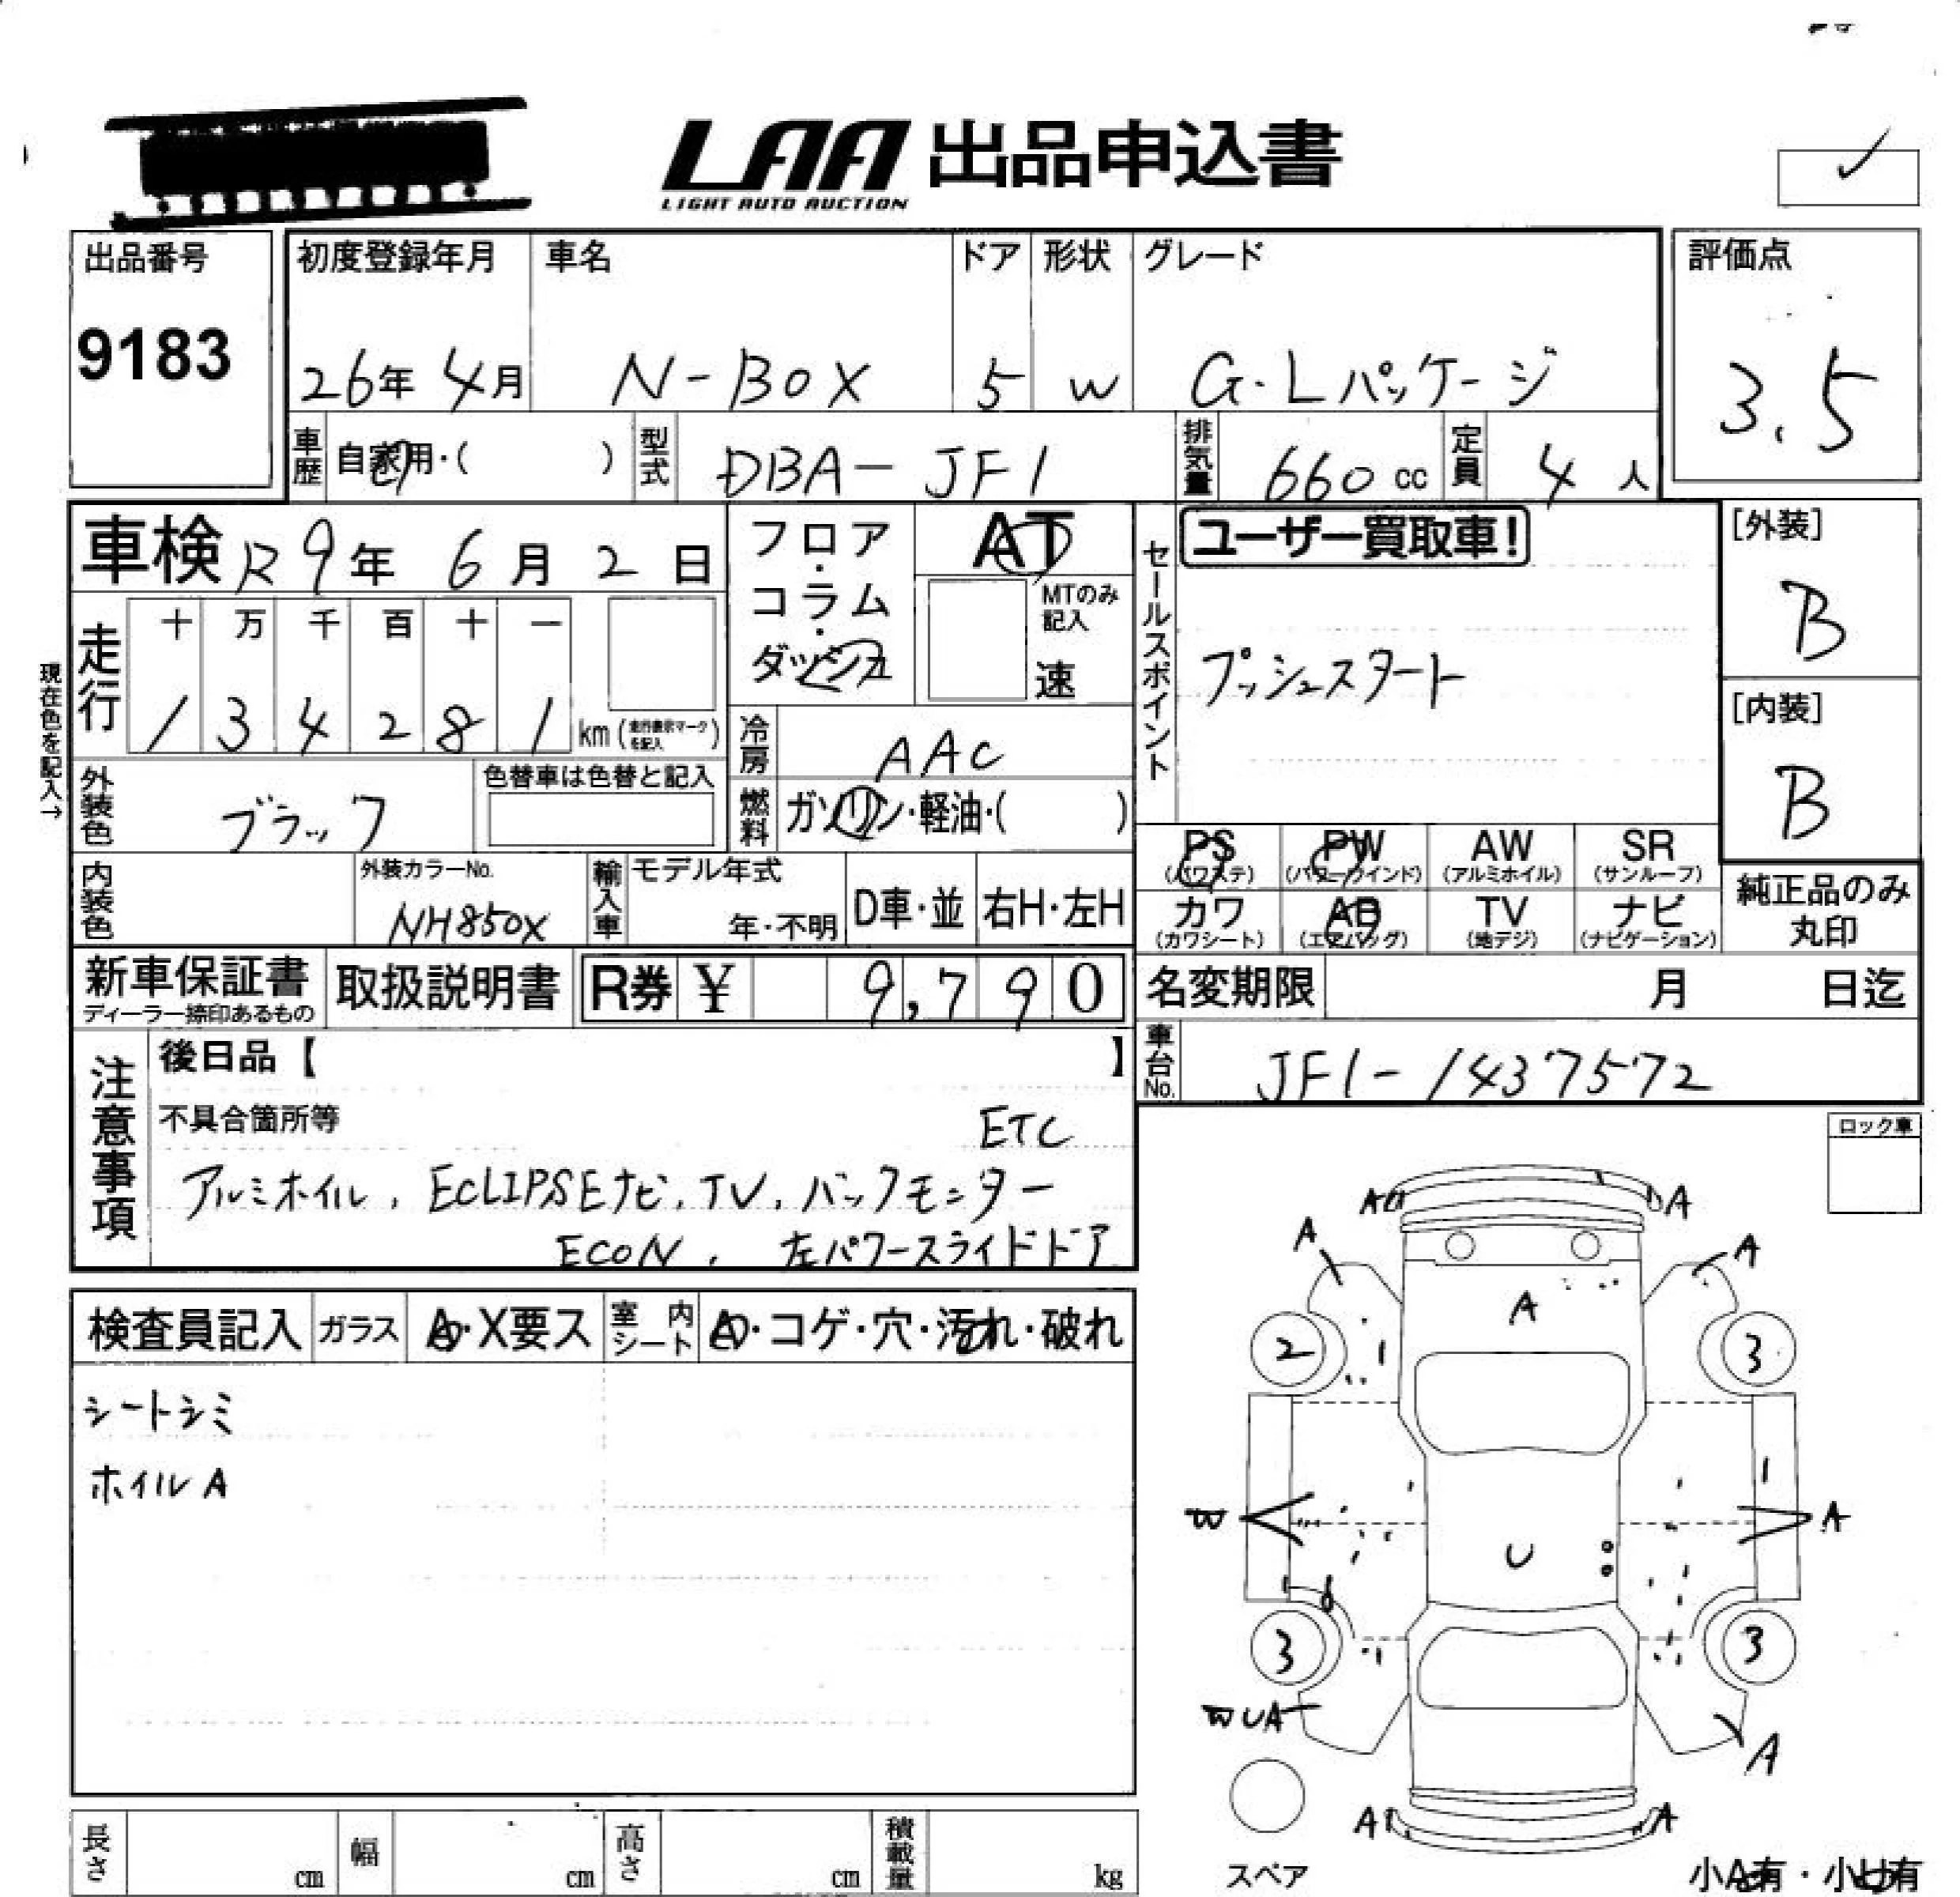 LAA 出品申込書
LIGHT AUTO AUCTION
出品番号
9183
初度登録年月
26年 4月
車名
N-BOX
ドア
5
形状
W
グレード
G・Lパッケージ
評価点
3.5
車歴
自家用・( )
型式
DBA-JF1
排気量
660 cc
定員
4 人
車検 R9年 6月 2日
走行
十 万 千 百 十 一
1 3 4 2 8 1 km(走行表示マークを記入)
現在色を記入→
外装色
ブラック
色替車は色替と記入
内装色
外装カラーNo.
NH850X
輸入車
モデル年式
年・不明
D車・並
右H・左H
フロア・コラム・ダッシュ
AT
MTのみ記入
速
冷房
AAC
燃料
ガソリン・軽油・( )
セールスポイント
ユーザー買取車!
プッシュスタート
[外装]
B
[内装]
B
PS (パワステ)
PW (パワーウインド)
AW (アルミホイル)
SR (サンルーフ)
カワ (カワシート)
AB (エアバッグ)
TV (地デジ)
ナビ (ナビゲーション)
純正品のみ丸印
新車保証書
ディーラー捺印あるもの
取扱説明書
R券 ¥ 9,790
名変期限 月 日迄
車台No.
JF1-1437572
注意事項
後日品【 】
不具合箇所等
ETC
アルミホイル, ECLIPSEナビ, TV, バックモニター
ECON, 左パワースライドドア
ロック車
検査員記入
ガラス
A・X要ス
室内シート
A・コゲ・穴・汚れ・破れ
シートシミ
ホイルA
A A
A A
A
2 3
W A
U
3 3
W U A
A
A A
スペア
小A有・小U有
長さ cm
幅 cm
高さ cm
積載量 kg